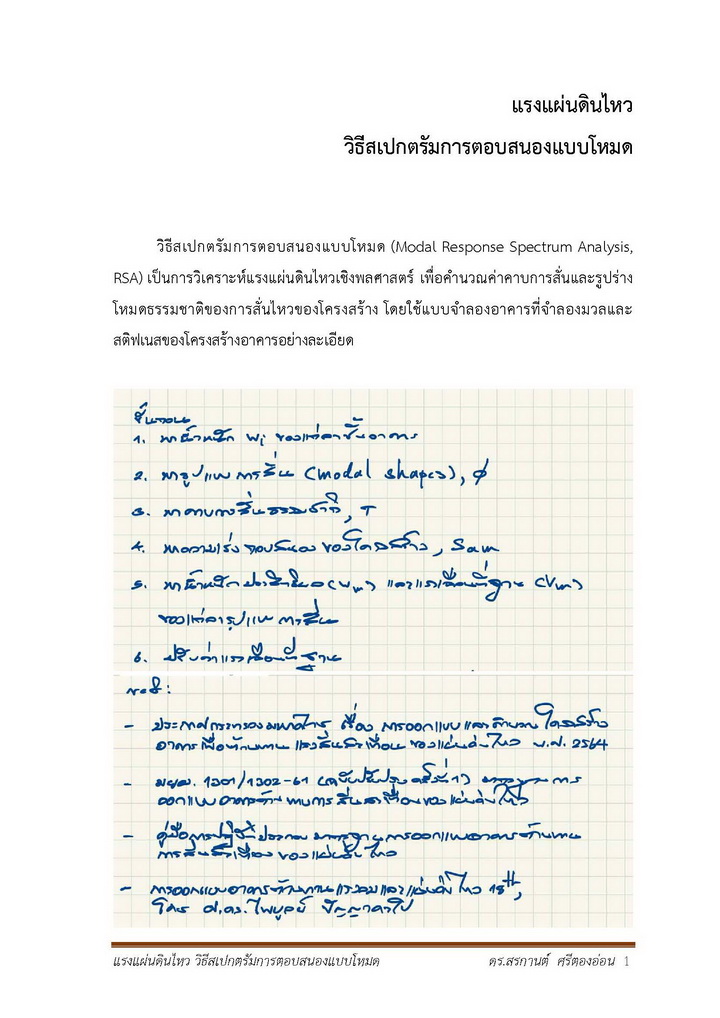 แรงแผ่นดินไหว
วิธีสเปกตรัมการตอบสนองแบบโหมด
วิธีสเปกตรัมการตอบสนองแบบโหมด (Modal Response Spectrum Analysis,
RSA) เป็นการวิเคราะห์แรงแผ่นดินไหวเชิงพลศาสตร์ เพื่อคำนวณค่าคาบการสั่นและรูปร่าง
โหมดธรรมชาติของการสั่นไหวของโครงสร้าง โดยใช้แบบจำลองอาคารที่จำลองมวลและ
สติฟเนสของโครงสร้างอาคารอย่างละเอียด
ขั้นตอน
1. หาน้ำหนัก Wi ของแต่ละชั้นอาคาร
2. หารูปแบบการสั่น (modal shapes), φ
3. หาคาบการสั่นธรรมชาติ, T
4. หาความเร่งตอบสนองของโครงสร้าง, Sam
5. หาน้ำหนักประสิทธิผล (Wm) และแรงเฉือนที่ฐาน (Vm)
ของแต่ละรูปแบบการสั่น
6. ปรับค่าแรงเฉือนที่ฐาน
- ประกาศกระทรวงมหาดไทย เรื่อง การออกแบบและคำนวณโครงสร้าง
อาคารเพื่อต้านทานแรงสั่นสะเทือนของแผ่นดินไหว พ.ศ. 2564
- มยผ. 1301/1302-61 (ฉบับปรับปรุงครั้งที่ 1) มาตรฐานการ
ออกแบบอาคารต้านทานการสั่นสะเทือนของแผ่นดินไหว
- คู่มือการปฏิบัติประกอบมาตรฐานการออกแบบอาคารต้านทาน
การสั่นสะเทือนของแผ่นดินไหว
- การออกแบบอาคารต้านทานแรงลมและแผ่นดินไหว
โดย ศ.ดร.ไพบูลย์ ปัญญาคะโป
แรงแผ่นดินไหว วิธีสเปกตรัมการตอบสนองแบบโหมด ดร.สรกานต์ ศรีตองอ่อน 1